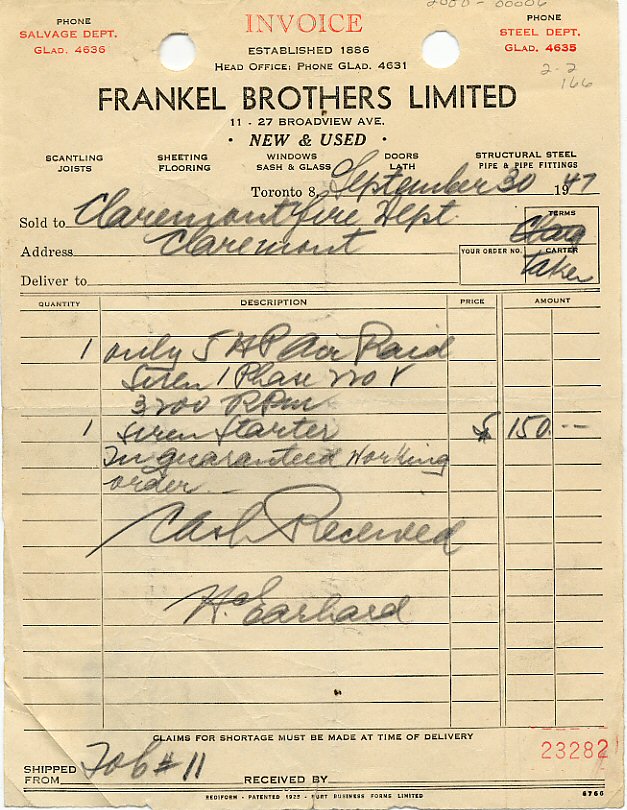 2000-00006
PHONE
SALVAGE DEPT.
GLAD. 4636
INVOICE
PHONE
STEEL DEPT.
GLAD. 4635
ESTABLISHED 1886
HEAD OFFICE: PHONE GLAD. 4631
2-2
166
FRANKEL BROTHERS LIMITED
11 - 27 BROADVIEW AVE.
• NEW & USED •
SCANTLING JOISTS
SHEETING FLOORING
WINDOWS SASH & GLASS
DOORS LATH
STRUCTURAL STEEL PIPE & PIPE FITTINGS
Toronto 8, September 30 1947
Sold to Claremont Fire Dept
TERMS
Address Claremont
YOUR ORDER NO.
CARTER
Taken
Deliver to
QUANTITY DESCRIPTION PRICE AMOUNT
1 only 5 HP Air Raid
Siren 1 Phase 220 V
3200 RPM
1 Siren Starter $ 150. --
In guaranteed working
order --
Cash Received
CLAIMS FOR SHORTAGE MUST BE MADE AT TIME OF DELIVERY
23282
SHIPPED FROM Job # 11 RECEIVED BY
6766